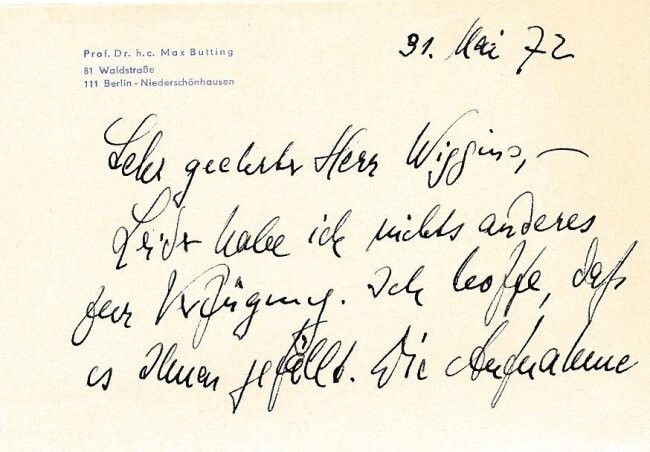 Prof. Dr. h.c. Max Butting
81 Waldstraße
111 Berlin - Niederschönhausen
31. Mai 72
Sehr geehrter Herr Wiggins, —
Leider habe ich nichts anderes
zur Verfügung. Ich hoffe, daß
es Ihnen gefällt. Die Aufnahme